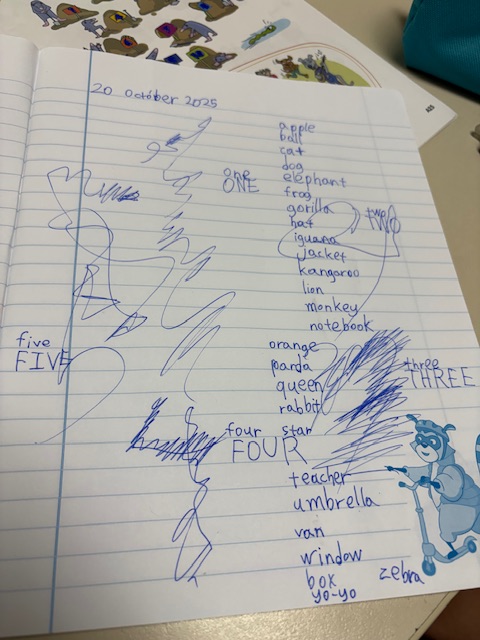 20 October 2025
apple
ball
cat
dog
one
ONE
elephant
frog
gorilla
two
TWO
hat
iguana
Jacket
kangaroo
lion
monkey
notebook
orange
five
FIVE
panda
three
THREE
queen
rabbit
four star
FOUR
teacher
umbrella
van
window
box
zebra
yo-yo